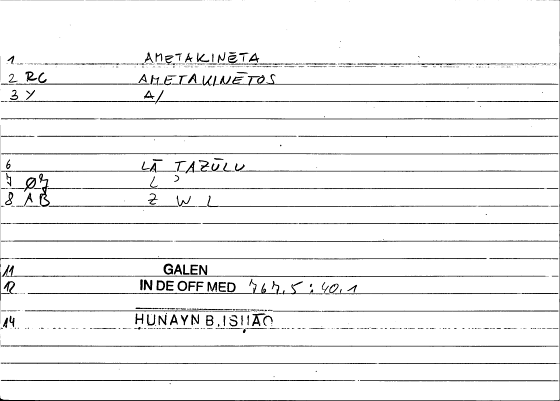 1 AMETAKINĒTA
2 RC AMETAKINĒTOS
3 Y A/
6 LĀ TAZŪLU
7 Ø7 L ʾ
8 AB Z W L
11 GALEN
12 IN DE OFF MED 767.5 : 40.1
14 ḤUNAYN B. ISḤĀQ